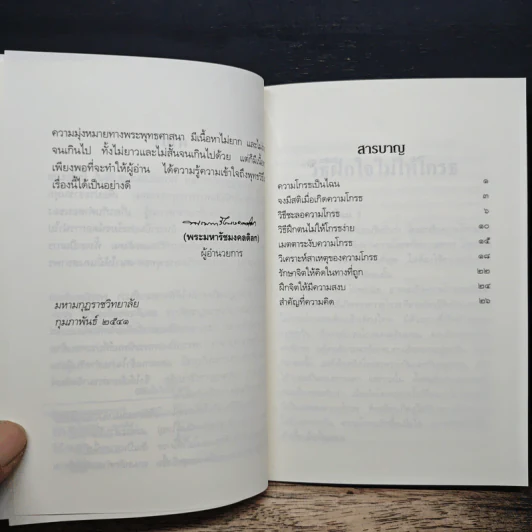 ความมุ่งหมายทางพระพุทธศาสนา มีเนื้อหาไม่ยาก และไม่
จนเกินไป ทั้งไม่ยาวและไม่สั้นจนเกินไปด้วย แต่ก็มี
เพียงพอที่จะทำให้ผู้อ่าน ได้ความรู้ความเข้าใจถึงพุทธวิธี
เรื่องนี้ได้เป็นอย่างดี
(พระมหารัชมงคลดิลก)
ผู้อำนวยการ
มหามกุฏราชวิทยาลัย
กุมภาพันธ์ ๒๕๔๑
สารบาญ
ความโกรธเป็นไฉน ๑
จงมีสติเมื่อเกิดความโกรธ ๓
วิธีชะลอความโกรธ ๖
วิธีฝึกตนไม่ให้โกรธง่าย ๑๐
เมตตาระงับความโกรธ ๑๕
วิเคราะห์สาเหตุของความโกรธ ๑๘
รักษาจิตให้คิดในทางที่ถูก ๒๒
ฝึกจิตให้มีความสงบ ๒๔
สำคัญที่ความคิด ๒๖